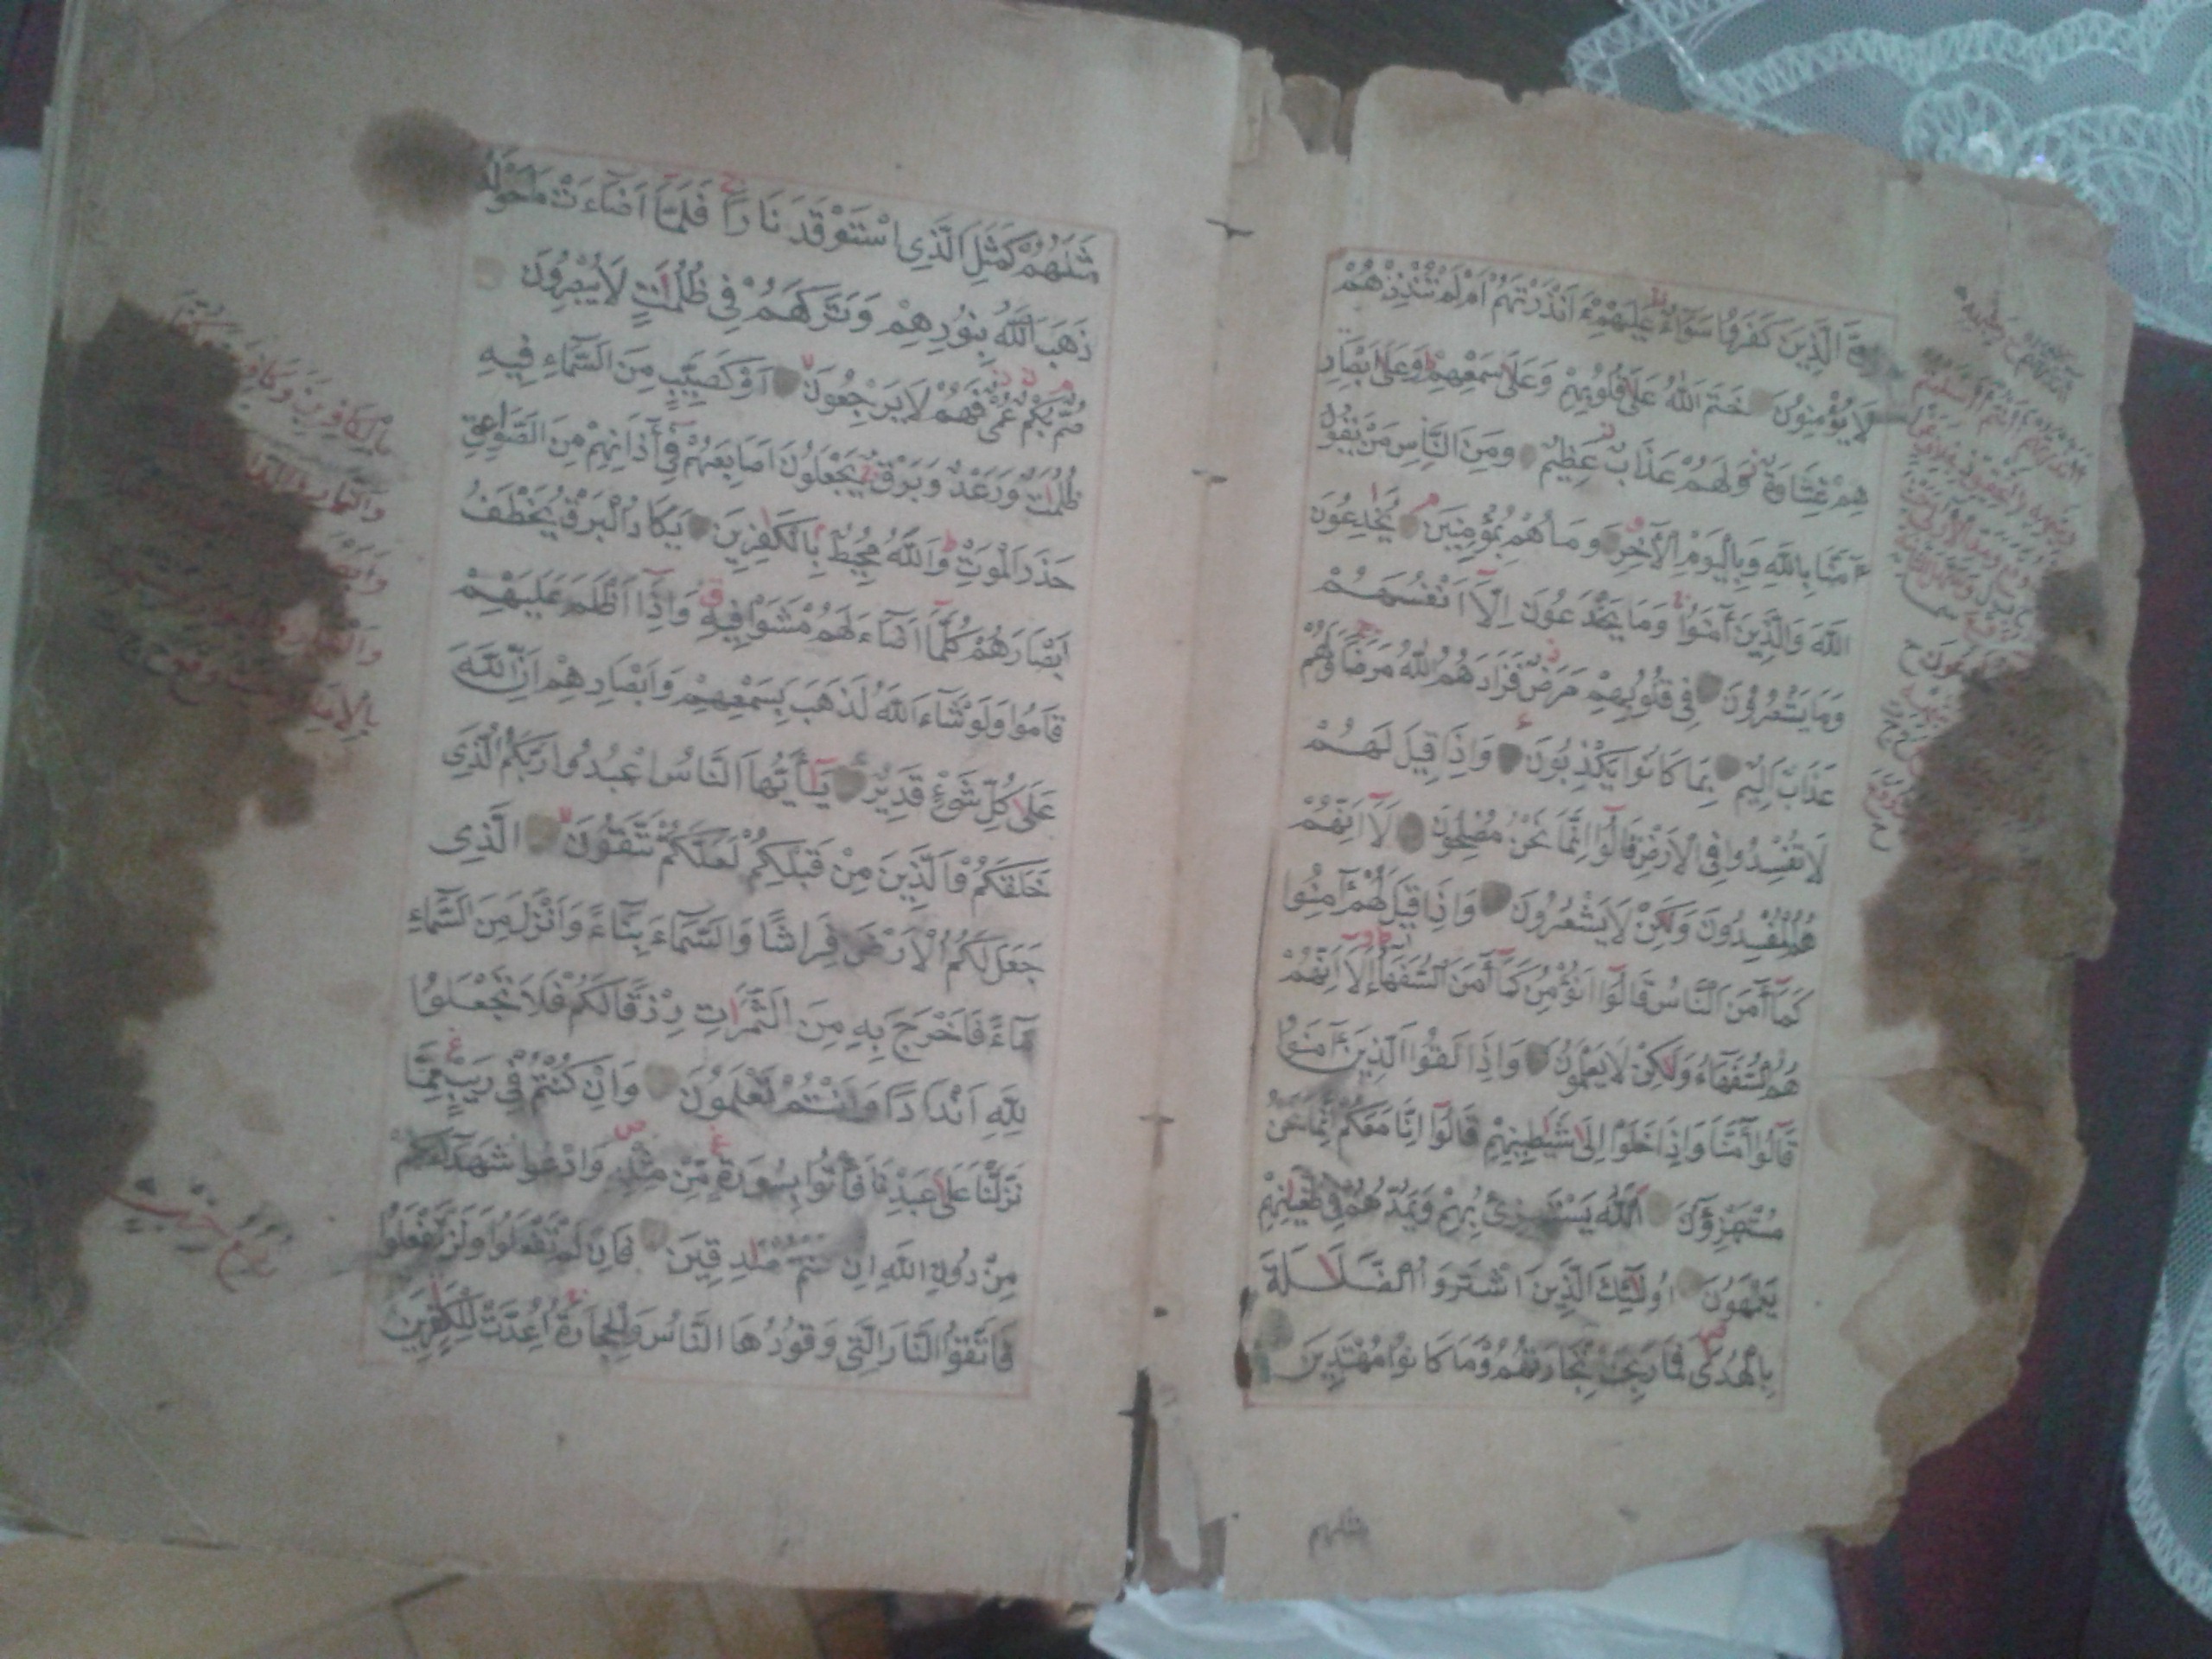 إِنَّ الَّذِينَ كَفَرُوا سَوَاءٌ عَلَيْهِمْ ءَاَنْذَرْتَهُمْ اَمْ لَمْ تُنْذِرْهُمْ
لَا يُؤْمِنُونَ خَتَمَ اللّٰهُ عَلٰى قُلُوبِهِمْ وَعَلٰى سَمْعِهِمْ وَعَلٰى اَبْصَارِ
هِمْ غِشَاوَةٌ وَلَهُمْ عَذَابٌ عَظِيمٌ وَمِنَ النَّاسِ مَنْ يَقُولُ
ءَامَنَّا بِاللّٰهِ وَبِالْيَوْمِ الْاٰخِرِ وَمَا هُمْ بِمُؤْمِنِينَ يُخٰدِعُونَ
اللّٰهَ وَالَّذِينَ اٰمَنُوا وَمَا يَخْدَعُونَ اِلَّا اَنْفُسَهُمْ
وَمَا يَشْعُرُونَ فِى قُلُوبِهِمْ مَرَضٌ فَزَادَهُمُ اللّٰهُ مَرَضًا وَلَهُمْ
عَذَابٌ اَلِيمٌ بِمَا كَانُوا يَكْذِبُونَ وَاِذَا قِيلَ لَهُمْ
لَا تُفْسِدُوا فِى الْاَرْضِ قَالُوا اِنَّمَا نَحْنُ مُصْلِحُونَ اَلَا اِنَّهُمْ
هُمُ الْمُفْسِدُونَ وَلٰكِنْ لَا يَشْعُرُونَ وَاِذَا قِيلَ لَهُمْ اٰمِنُوا
كَمَا اٰمَنَ النَّاسُ قَالُوا اَنُؤْمِنُ كَمَا اٰمَنَ السُّفَهَاءُ اَلَا اِنَّهُمْ
هُمُ السُّفَهَاءُ وَلٰكِنْ لَا يَعْلَمُونَ وَاِذَا لَقُوا الَّذِينَ اٰمَنُوا
قَالُوا اٰمَنَّا وَاِذَا خَلَوْا اِلٰى شَيٰطِينِهِمْ قَالُوا اِنَّا مَعَكُمْ اِنَّمَا نَحْنُ
مُسْتَهْزِؤُنَ اَللّٰهُ يَسْتَهْزِئُ بِهِمْ وَيَمُدُّهُمْ فِى طُغْيٰنِهِمْ
يَعْمَهُونَ اُولٰئِكَ الَّذِينَ اشْتَرَوُا الضَّلَالَةَ
بِالْهُدٰى فَمَا رَبِحَتْ تِجَارَتُهُمْ وَمَا كَانُوا مُهْتَدِينَ
مثلهم
مَثَلُهُمْ كَمَثَلِ الَّذِى اسْتَوْقَدَ نَارًا فَلَمَّا اَضَاءَتْ مَا حَوْلَهُ
ذَهَبَ اللّٰهُ بِنُورِهِمْ وَتَرَكَهُمْ فِى ظُلُمٰتٍ لَا يُبْصِرُونَ
صُمٌّ بُكْمٌ عُمْىٌ فَهُمْ لَا يَرْجِعُونَ اَوْ كَصَيِّبٍ مِنَ السَّمَاءِ فِيهِ
ظُلُمٰتٌ وَرَعْدٌ وَبَرْقٌ يَجْعَلُونَ اَصَابِعَهُمْ فِى اٰذَانِهِمْ مِنَ الصَّوَاعِقِ
حَذَرَ الْمَوْتِ وَاللّٰهُ مُحِيطٌ بِالْكٰفِرِينَ يَكَادُ الْبَرْقُ يَخْطَفُ
اَبْصَارَهُمْ كُلَّمَا اَضَاءَ لَهُمْ مَشَوْا فِيهِ وَاِذَا اَظْلَمَ عَلَيْهِمْ
قَامُوا وَلَوْ شَاءَ اللّٰهُ لَذَهَبَ بِسَمْعِهِمْ وَاَبْصَارِهِمْ اِنَّ اللّٰهَ
عَلٰى كُلِّ شَىْءٍ قَدِيرٌ يَا اَيُّهَا النَّاسُ اعْبُدُوا رَبَّكُمُ الَّذِى
خَلَقَكُمْ وَالَّذِينَ مِنْ قَبْلِكُمْ لَعَلَّكُمْ تَتَّقُونَ الَّذِى
جَعَلَ لَكُمُ الْاَرْضَ فِرَاشًا وَالسَّمَاءَ بِنَاءً وَاَنْزَلَ مِنَ السَّمَاءِ
مَاءً فَاَخْرَجَ بِهِ مِنَ الثَّمَرَاتِ رِزْقًا لَكُمْ فَلَا تَجْعَلُوا
لِلّٰهِ اَنْدَادًا وَاَنْتُمْ تَعْلَمُونَ وَاِنْ كُنْتُمْ فِى رَيْبٍ مِمَّا
نَزَّلْنَا عَلٰى عَبْدِنَا فَأْتُوا بِسُورَةٍ مِنْ مِثْلِهِ وَادْعُوا شُهَدَاءَكُمْ
مِنْ دُونِ اللّٰهِ اِنْ كُنْتُمْ صَادِقِينَ فَاِنْ لَمْ تَفْعَلُوا وَلَنْ تَفْعَلُوا
فَاتَّقُوا النَّارَ الَّتِى وَقُودُهَا النَّاسُ وَالْحِجَارَةُ اُعِدَّتْ لِلْكٰفِرِينَ